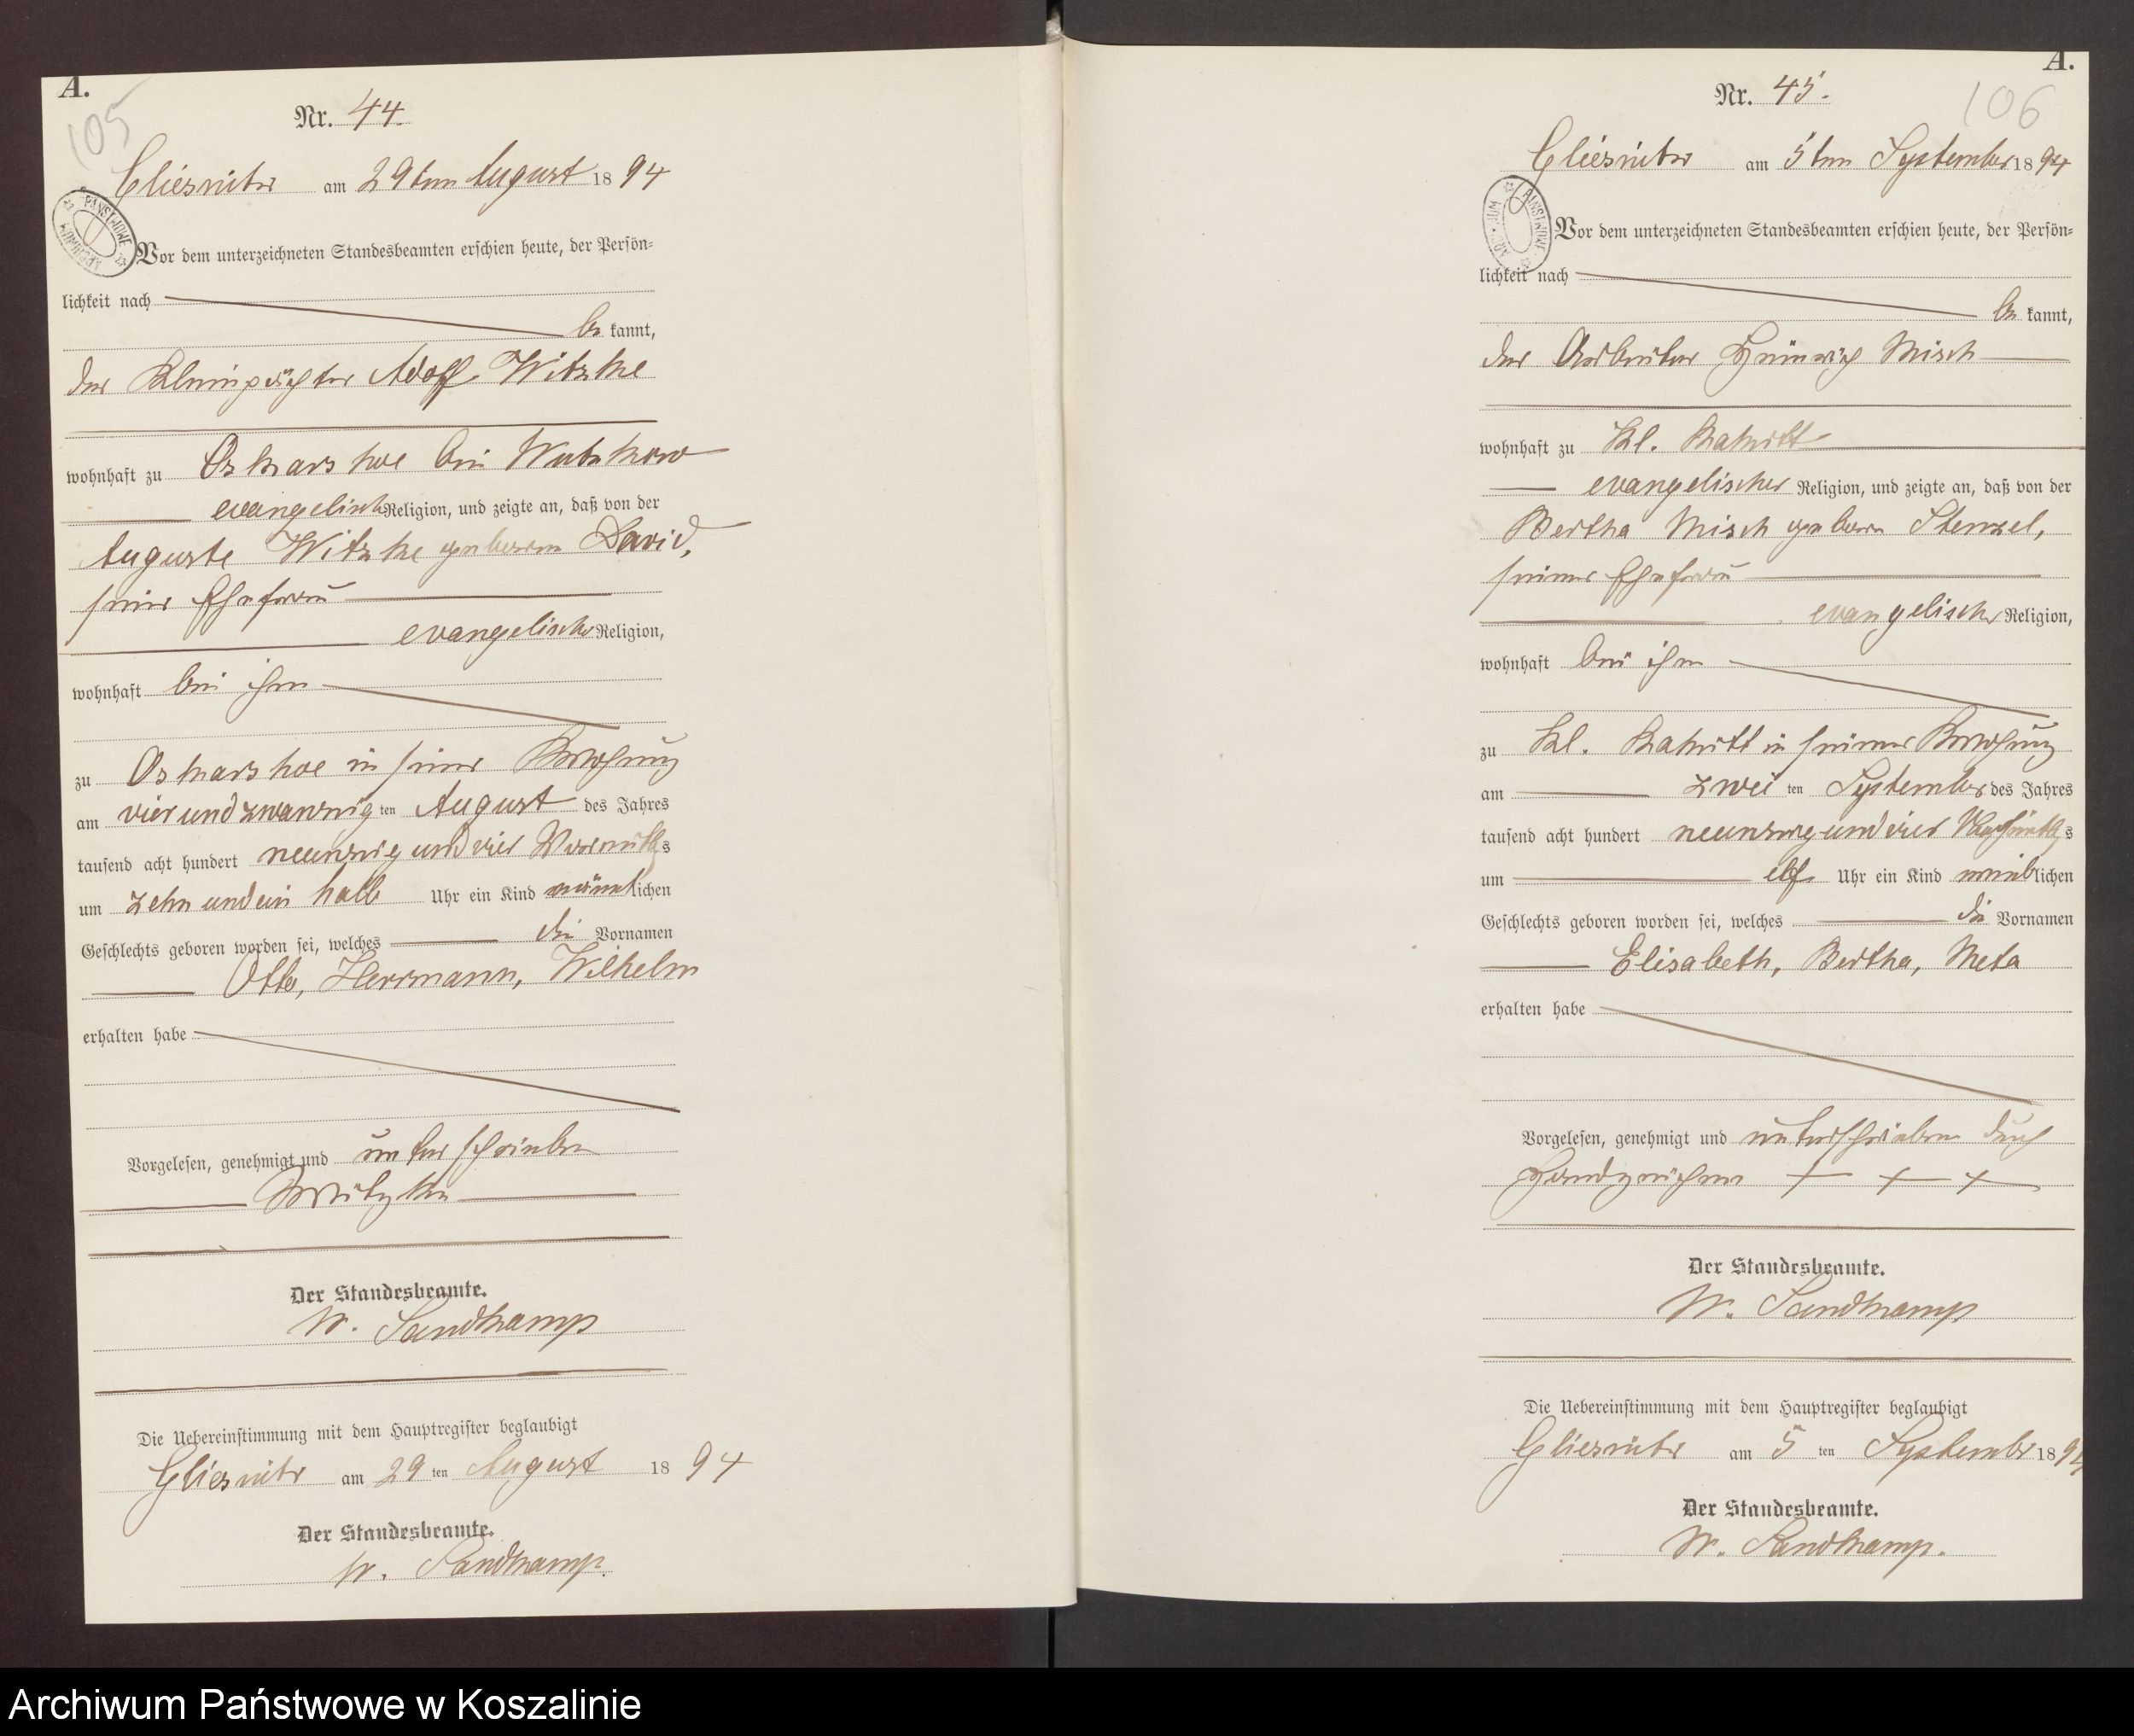 A.
105
Nr. 44.
Gliesnitz am 29ten August 1894
Vor dem unterzeichneten Standesbeamten erschien heute, der Persön=
lichkeit nach
be kannt,
der Kleinpächter Adolf Witzke
wohnhaft zu Oskarshoe bei Wutzkow
evangelisch Religion, und zeigte an, daß von der
Auguste Witzke geboren David,
seiner Ehefrau
evangelischer Religion,
wohnhaft bei ihm
zu Oskarshoe in seiner Wohnung
am vierundzwanzig ten August des Jahres
tausend acht hundert neunzig und vier Vormittags
um zehn und ein halb Uhr ein Kind männlichen
Geschlechts geboren worden sei, welches die Vornamen
Otto, Herrmann, Wilhelm
erhalten habe
Vorgelesen, genehmigt und unterschrieben
Witzke
Der Standesbeamte.
W. Sandkamp
Die Uebereinstimmung mit dem Hauptregister beglaubigt
Gliesnitz am 29 ten August 1894
Der Standesbeamte.
W. Sandkamp.
A.
106
Nr. 45.
Gliesnitz am 5ten September 1894
Vor dem unterzeichneten Standesbeamten erschien heute, der Persön=
lichkeit nach
be kannt,
der Arbeiter Heinrich Misch
wohnhaft zu Kl. Rakitt
evangelischer Religion, und zeigte an, daß von der
Bertha Misch geboren Stenzel,
seiner Ehefrau
evangelischer Religion,
wohnhaft bei ihm
zu Kl. Rakitt in seiner Wohnung
am zwei ten September des Jahres
tausend acht hundert neunzig und vier Nachmittags
um elf Uhr ein Kind weiblichen
Geschlechts geboren worden sei, welches die Vornamen
Elisabeth, Bertha, Meta
erhalten habe
Vorgelesen, genehmigt und unterschrieben durch
Handzeichen + + +
Der Standesbeamte.
W. Sandkamp
Die Uebereinstimmung mit dem Hauptregister beglaubigt
Gliesnitz am 5 ten September 1894
Der Standesbeamte.
W. Sandkamp.
Archiwum Państwowe w Koszalinie